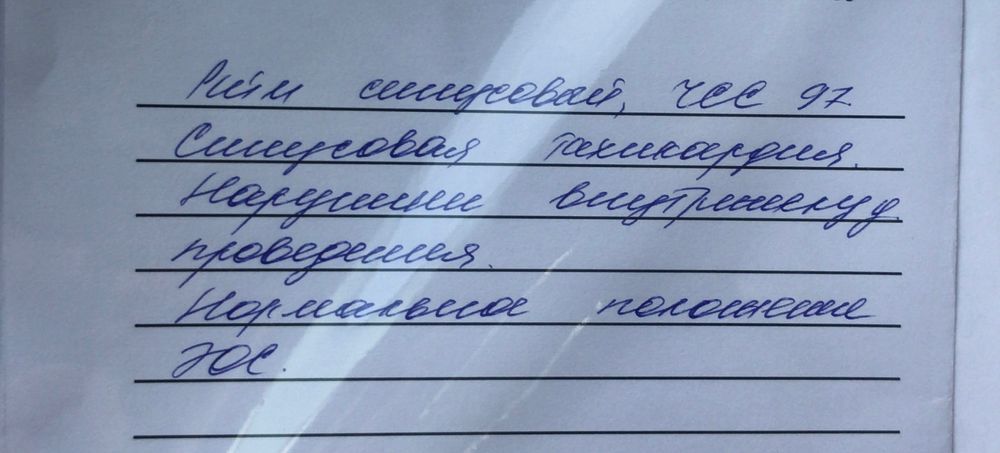 Ритм синусовый, ЧСС 97.
Синусовая тахикардия.
Нарушение внутрижелуд.
проведения.
Нормальное положение
ЭОС.